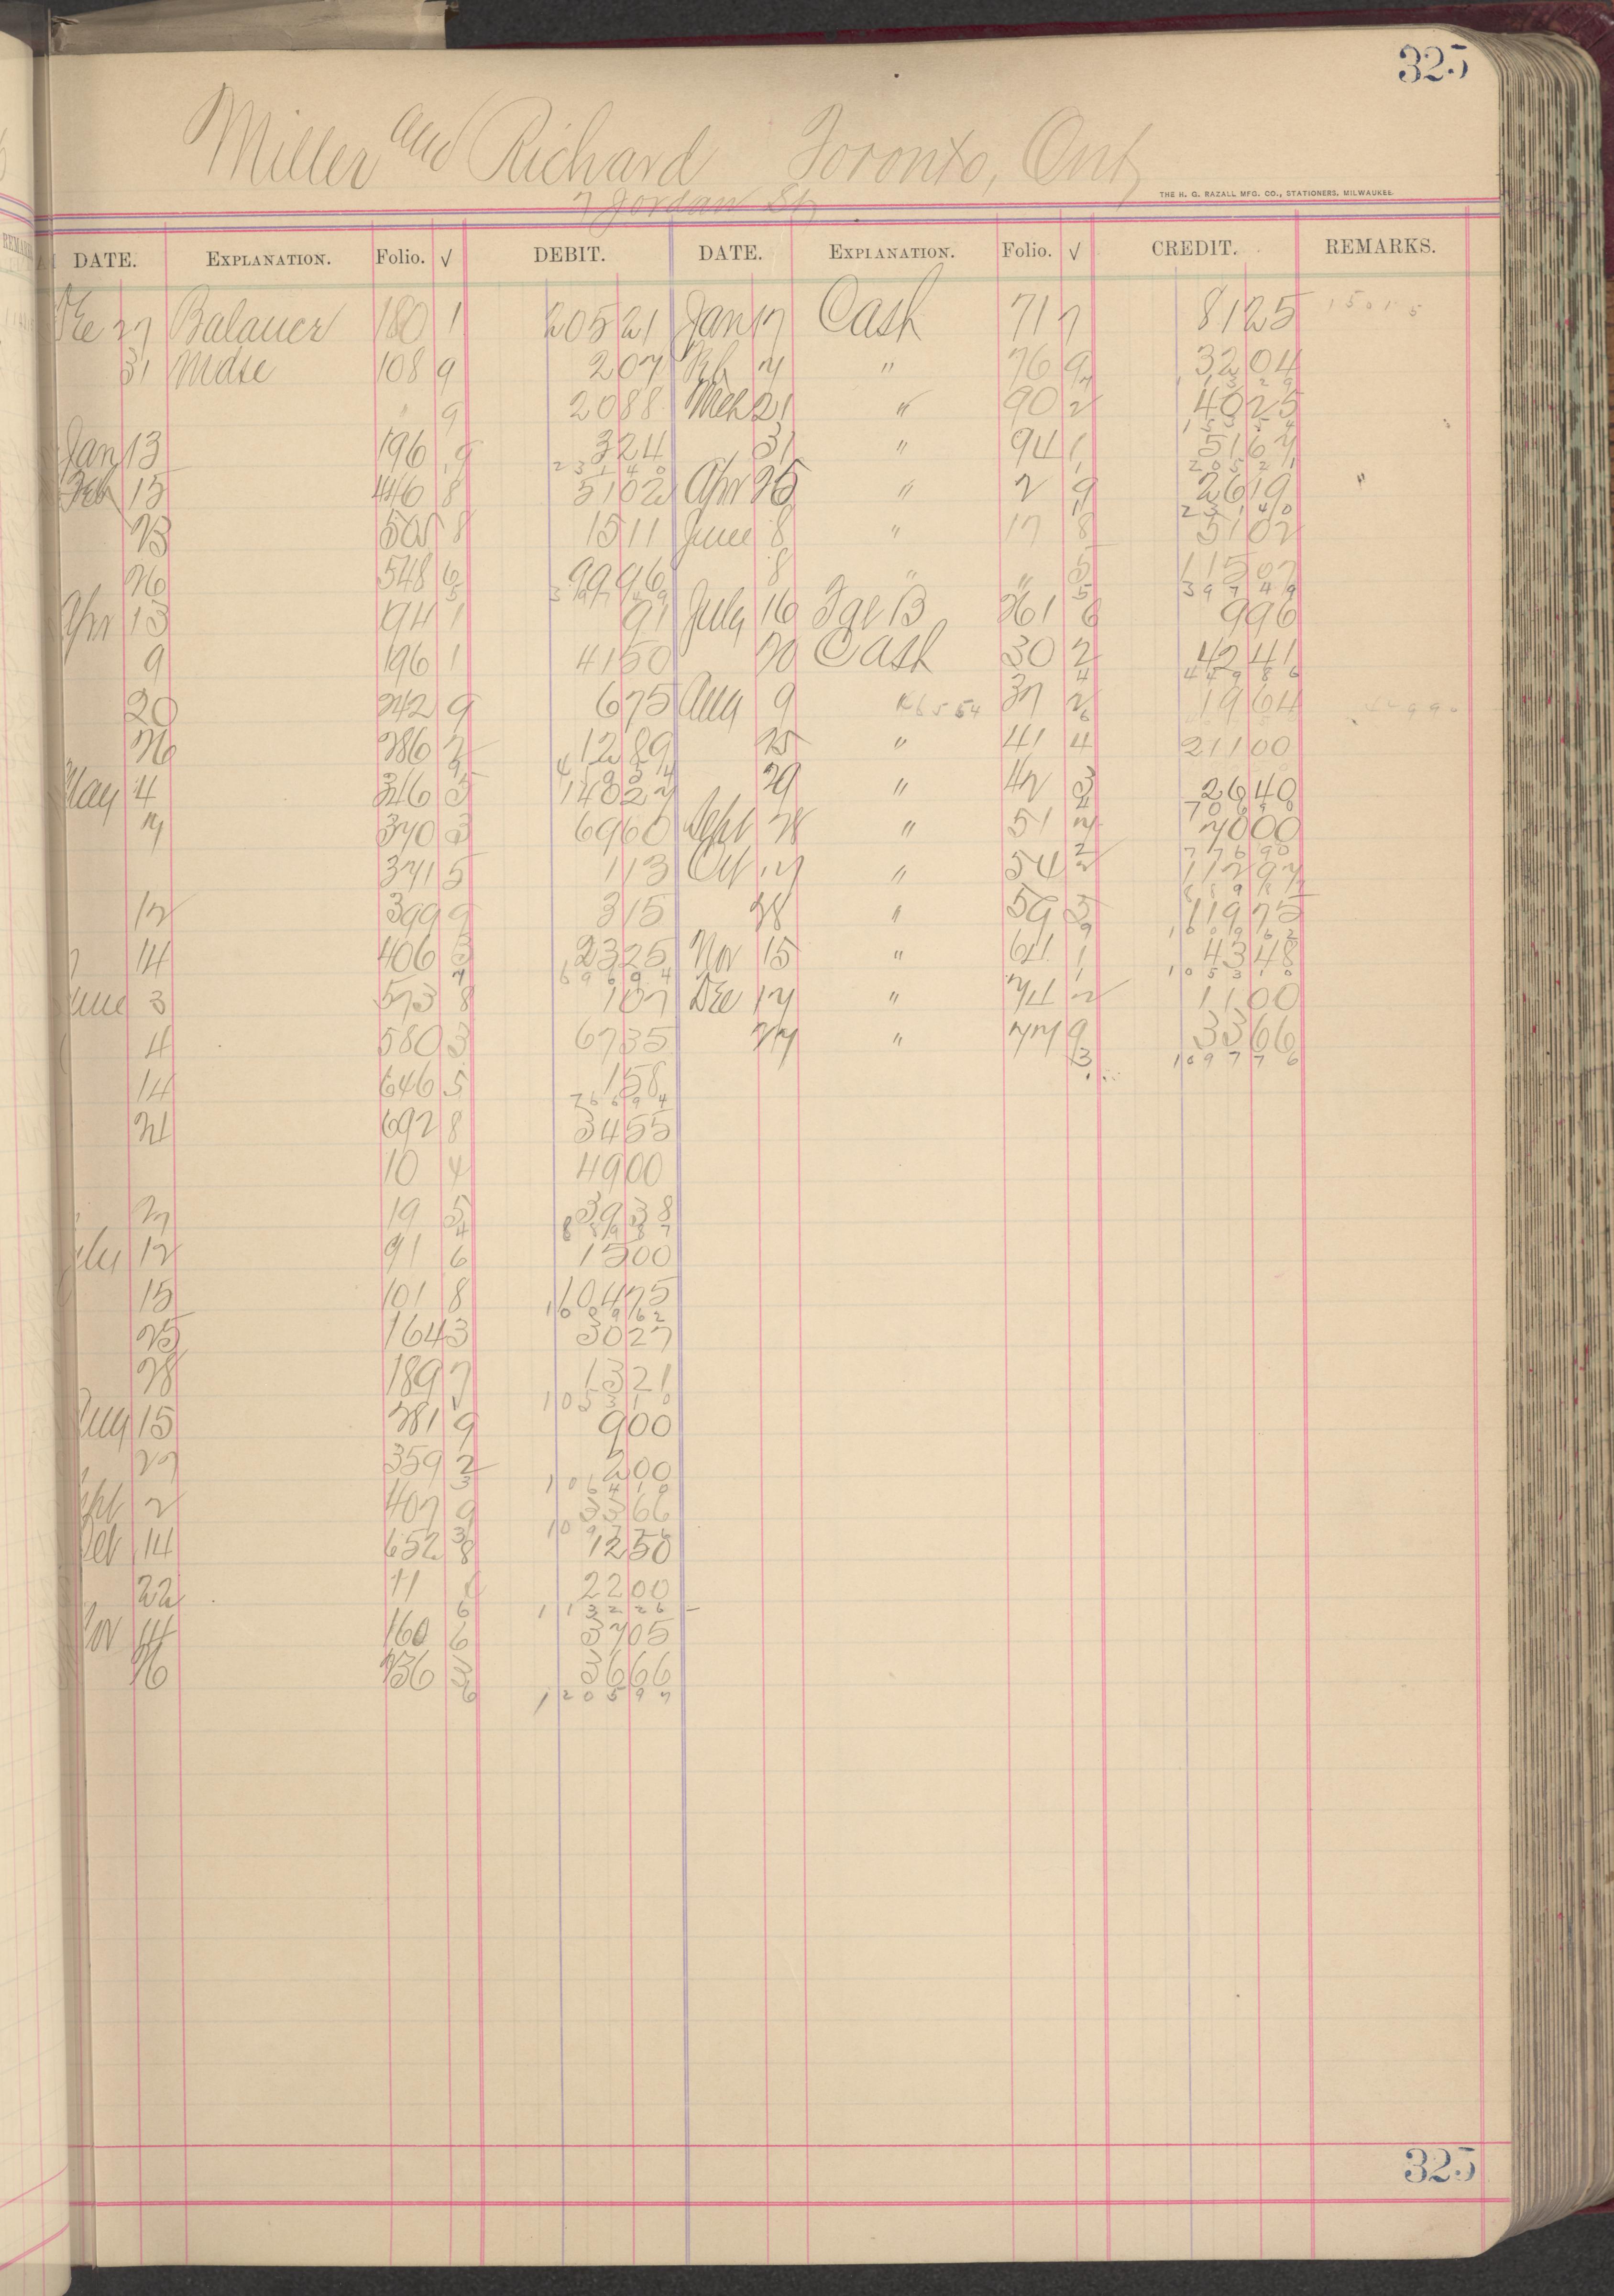 325
Miller and Richard Toronto, Ont
7 Jordan St
THE H. G. RAZALL MFG. CO., STATIONERS, MILWAUKEE.
DATE. EXPLANATION. Folio. √ DEBIT. DATE. EXPLANATION. Folio. √ CREDIT. REMARKS.
Dec 27 Balance 180 1 205 21 Jan 17 Cash 71 7 81 25
31 Mdse 108 9 2 07 Feb 7 " 76 9 32 04
" 9 20 88 Mch 21 " 90 2 40 25
Jan 13 196 9 3 24 31 " 94 1 51 67
231 40 205 21
Feb 15 446 8 51 02 Apr 25 " 2 9 26 19
231 40
23 505 8 15 11 June 8 " 17 8 51 02
26 548 6 99 96 8 " " 5 115 07
397 49 397 49
Apr 13 94 1 91 July 16 361 6 9 96
9 196 1 41 50 20 Cash 30 2 42 41
449 86
20 242 9 6 75 Aug 9 37 2 19 64
26 286 2 12 89 25 " 41 4 211 00
May 4 346 5 140 27 29 " 42 3 26 40
7 370 3 69 60 Sept 28 " 51 7 70 00
776 90
371 5 1 13 Oct 17 " 54 2 112 97
889 87
12 399 9 3 15 28 " 59 5 119 75
1009 62
14 406 3 23 25 Nov 15 " 64 1 43 48
696 94 1053 10
June 3 573 8 1 07 Dec 17 " 74 2 11 00
4 580 3 67 35 27 " 77 9 33 66
1097 76
14 646 5 1 58
766 94
21 692 8 34 55
10 4 49 00
27 19 5 39 38
889 87
July 12 91 6 15 00
15 101 8 104 75
1009 62
25 164 3 30 27
28 189 7 13 21
1053 10
Aug 15 281 9 9 00
27 359 2 2 00
1064 10
Sept 2 407 9 33 66
1097 76
Oct 14 652 8 12 50
22 11 22 00
1132 26
Nov 14 160 6 37 05
26 236 3 36 66
1205 97
325